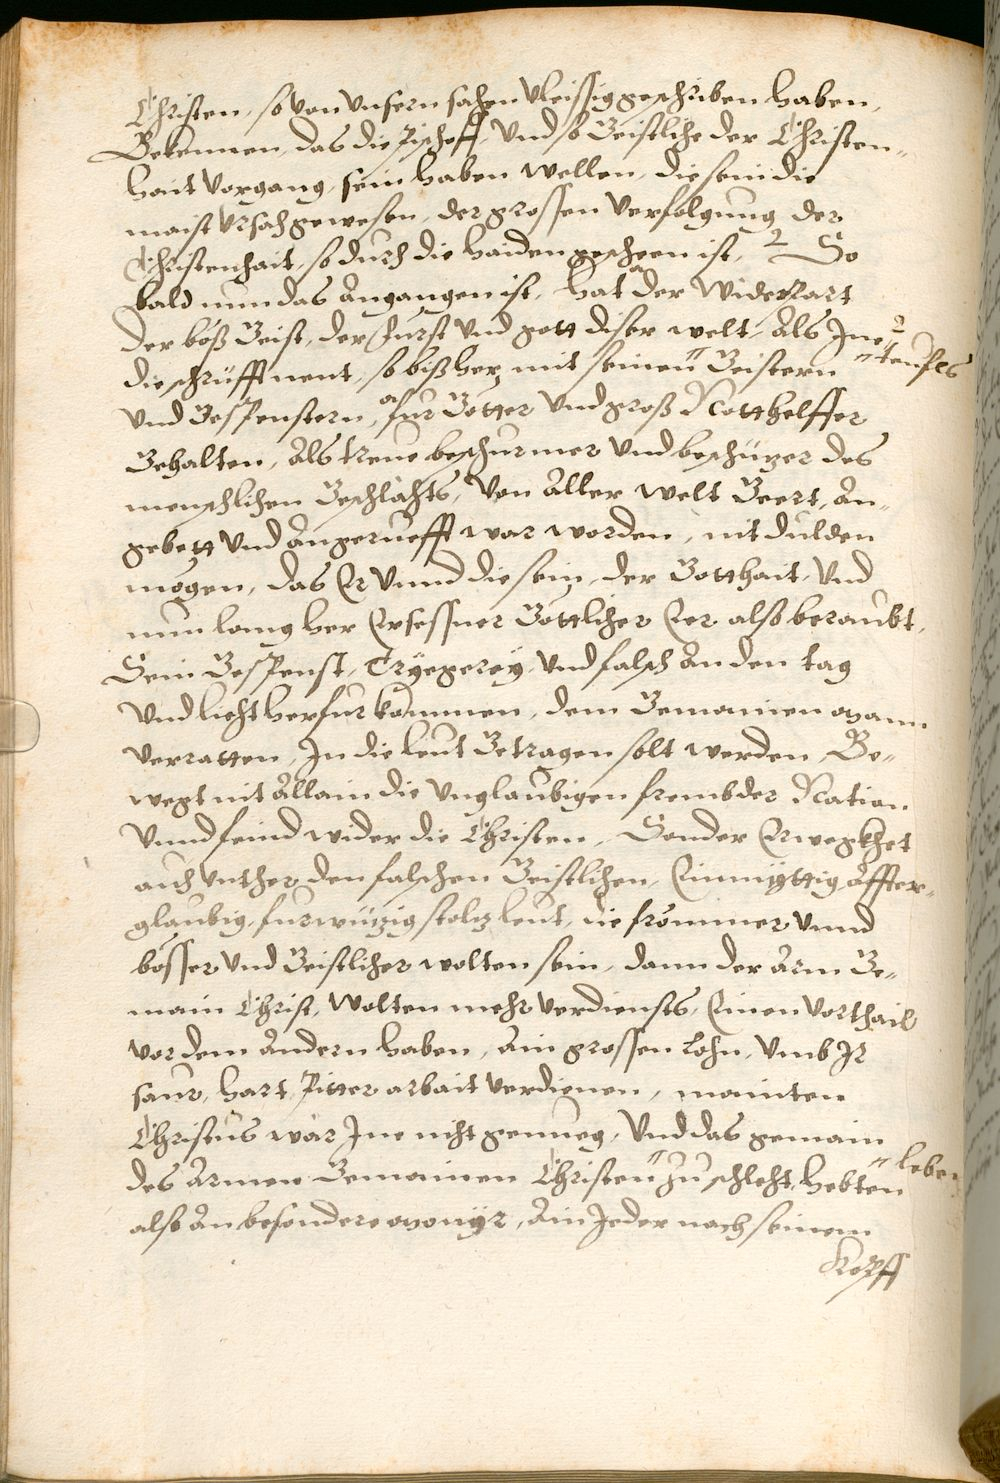 Christen, so von vnsern sachen vleissig geschriben haben,
Bekennen, das die Pischoff, vnd so Geistliche der Christen-
hait vorgang sein haben wellen, die sein die
maist vrsach gewesen, der grossen verfolgung der
Christenhait, so durch die haiden gescheen ist, So
bald nun das angangen ist, hat der widerpart
der böß Geist, der Furst vnd gott diser welt, als Ine
die schrüfft nent, so bißher, mit seinen Geistern
teufls
vnd Gespenstern, fur Götter vnd groß Notthelffer
Gehalten, als treue beschurmer vnd beschützer des
menschlichen Geschlächts, von aller welt Geert, an-
gebett vnd angeruefft war worden, nit dulden
mögen, das Er vnnd die sein, der Gotthait, vnd
nun lang her Ersessner Göttlicher Eer also beraubt,
Sein Gespenst, Tryegerey, vnd falsch an den tag
vnd liecht herfur kommen, dem Gemainen mann
verratten, In die leut Getragen solt werden, Be-
wegt nit allain die vnglaubigen frembder Nation
vnnd feind wider die Christen, Sonder Erwegkhet
auch vnther den falschen Geistlichen, Ainmüttig, affter-
glaubig, furwützig stoltz leut, die frömmer vnnd
bösser vnd Geistlicher wolten sein, dann der arm Ge-
main Christ, Wolten mehr verdiensts, Einen vorthail
vor dem andern haben, ain grossen Lohn, vmb Ir
saur, hart, Pitter arbait verdienen, mainten
Christus war Ine nicht genueg, vnd das gemain
des armen Gemainen Christen zu schlecht, hebten
leben
also an besondere monyr, ain Jeder nach seinem
Kopff